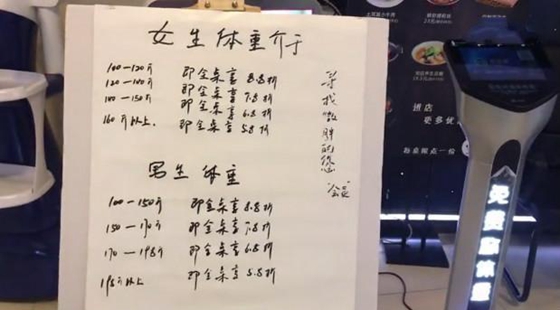 女生体重介于
100—120斤 即全桌享8.8折
120—140斤 即全桌享7.8折
140—150斤 即全桌享6.8折
160斤以上. 即全桌享5.8折
男生体重
100—150斤 即全桌享8.8折
150—170斤 即全桌享7.8折
170—195斤 即全桌享6.8折
195斤以上 即全桌享5.8折
寻找
胖的您
进店
更多优
免费
体重